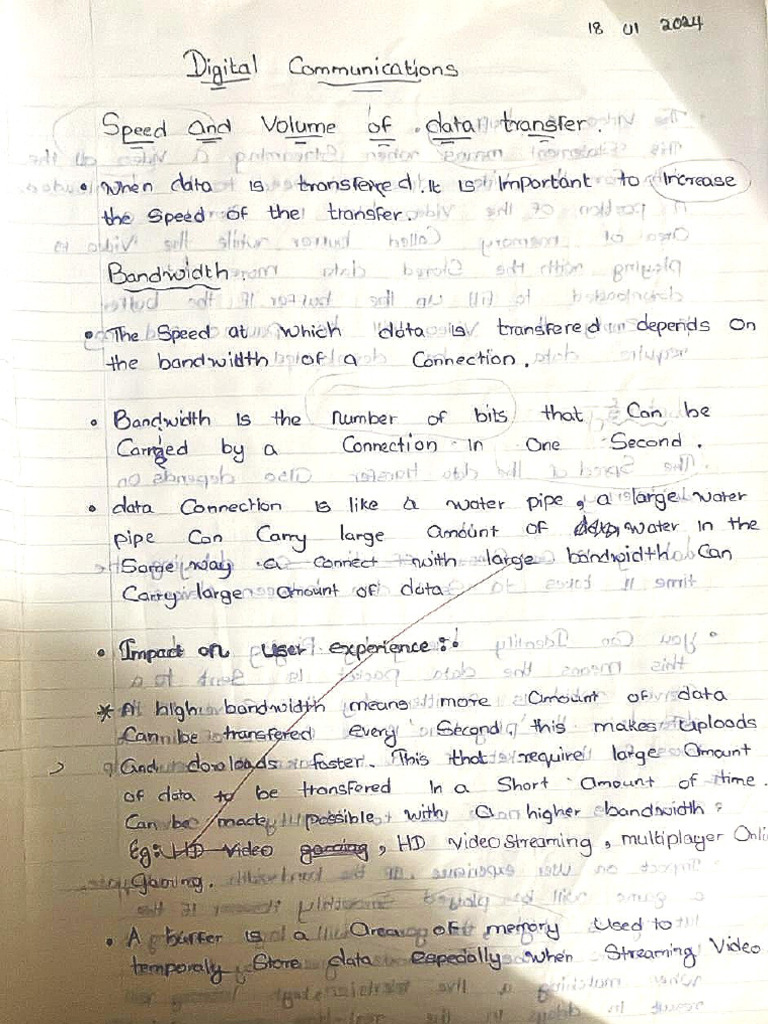 18 01 2024
Digital Communications
Speed and Volume of data transfer.
• When data is transfered it is important to increase
the speed of the transfer.
Bandwidth.
• The Speed at which data is transfered depends on
the bandwidth of a Connection.
• Bandwidth is the number of bits that Can be
Carried by a Connection in One Second.
• data Connection is like a water pipe, a large water
pipe Can Carry large amount of water in the
Same way a connect with large bandwidth Can
Carry large amount of data
• Impact on user experience:
* A high bandwidth means more amount of data
Can be transfered every Second, this makes Uploads
And dowloads faster. This that require large amount
of data to be transfered in a Short amount of time.
Can be made possible with a higher bandwidth
Eg: HD video gaming, HD video streaming, multiplayer Onli
gaming.
• A buffer is a area of memory Used to
temporally Store data especially when Streaming Video